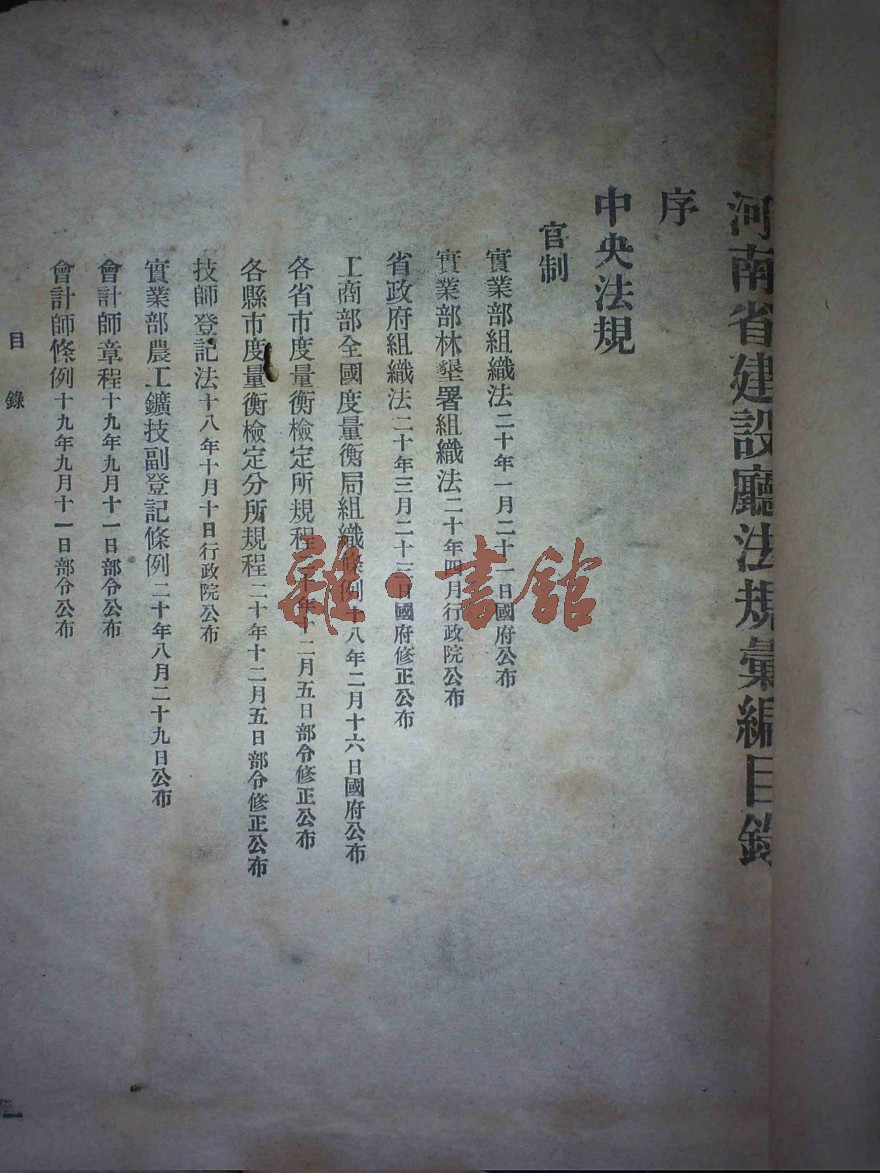 河南省建設廳法規彙編目錄
序
中央法規
官制
實業部組織法二十年一月二十一日國府公布
實業部林墾署組織法二十年四月行政院公布
省政府組織法二十年三月二十三日國府修正公布
工商部全國度量衡局組織條例十八年二月十六日國府公布
各省市度量衡檢定所規程年十二月五日部令修正公布
各縣市度量衡檢定分所規程二十年十二月五日部令修正公布
技師登記法十八年十月十日行政院公布
實業部農工鑛技副登記條例二十年八月二十九日公布
會計師章程十九年九月十一日部令公布
會計師條例十九年九月十一日部令公布
目錄
雜·書館